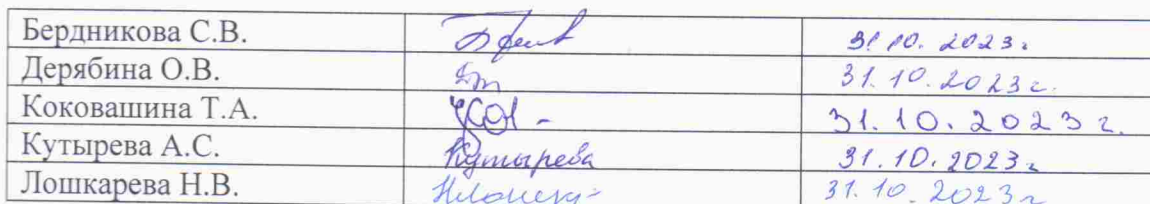 Бердникова С.В. 31.10.2023г.
Дерябина О.В. 31.10.2023г.
Коковашина Т.А. 31.10.2023г.
Кутырева А.С. Кутырева 31.10.2023г
Лошкарева Н.В. 31.10.2023г